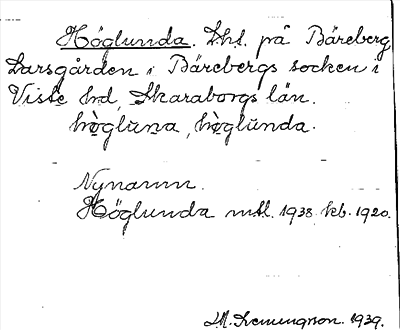 Höglunda. Lht. på Bäreberg
Larsgården i Bärebergs socken i
Viste hd, Skaraborgs län.
hògluna, hòglunda.
Nynamn.
Höglunda mtl. 1938 kb. 1920.
1939.